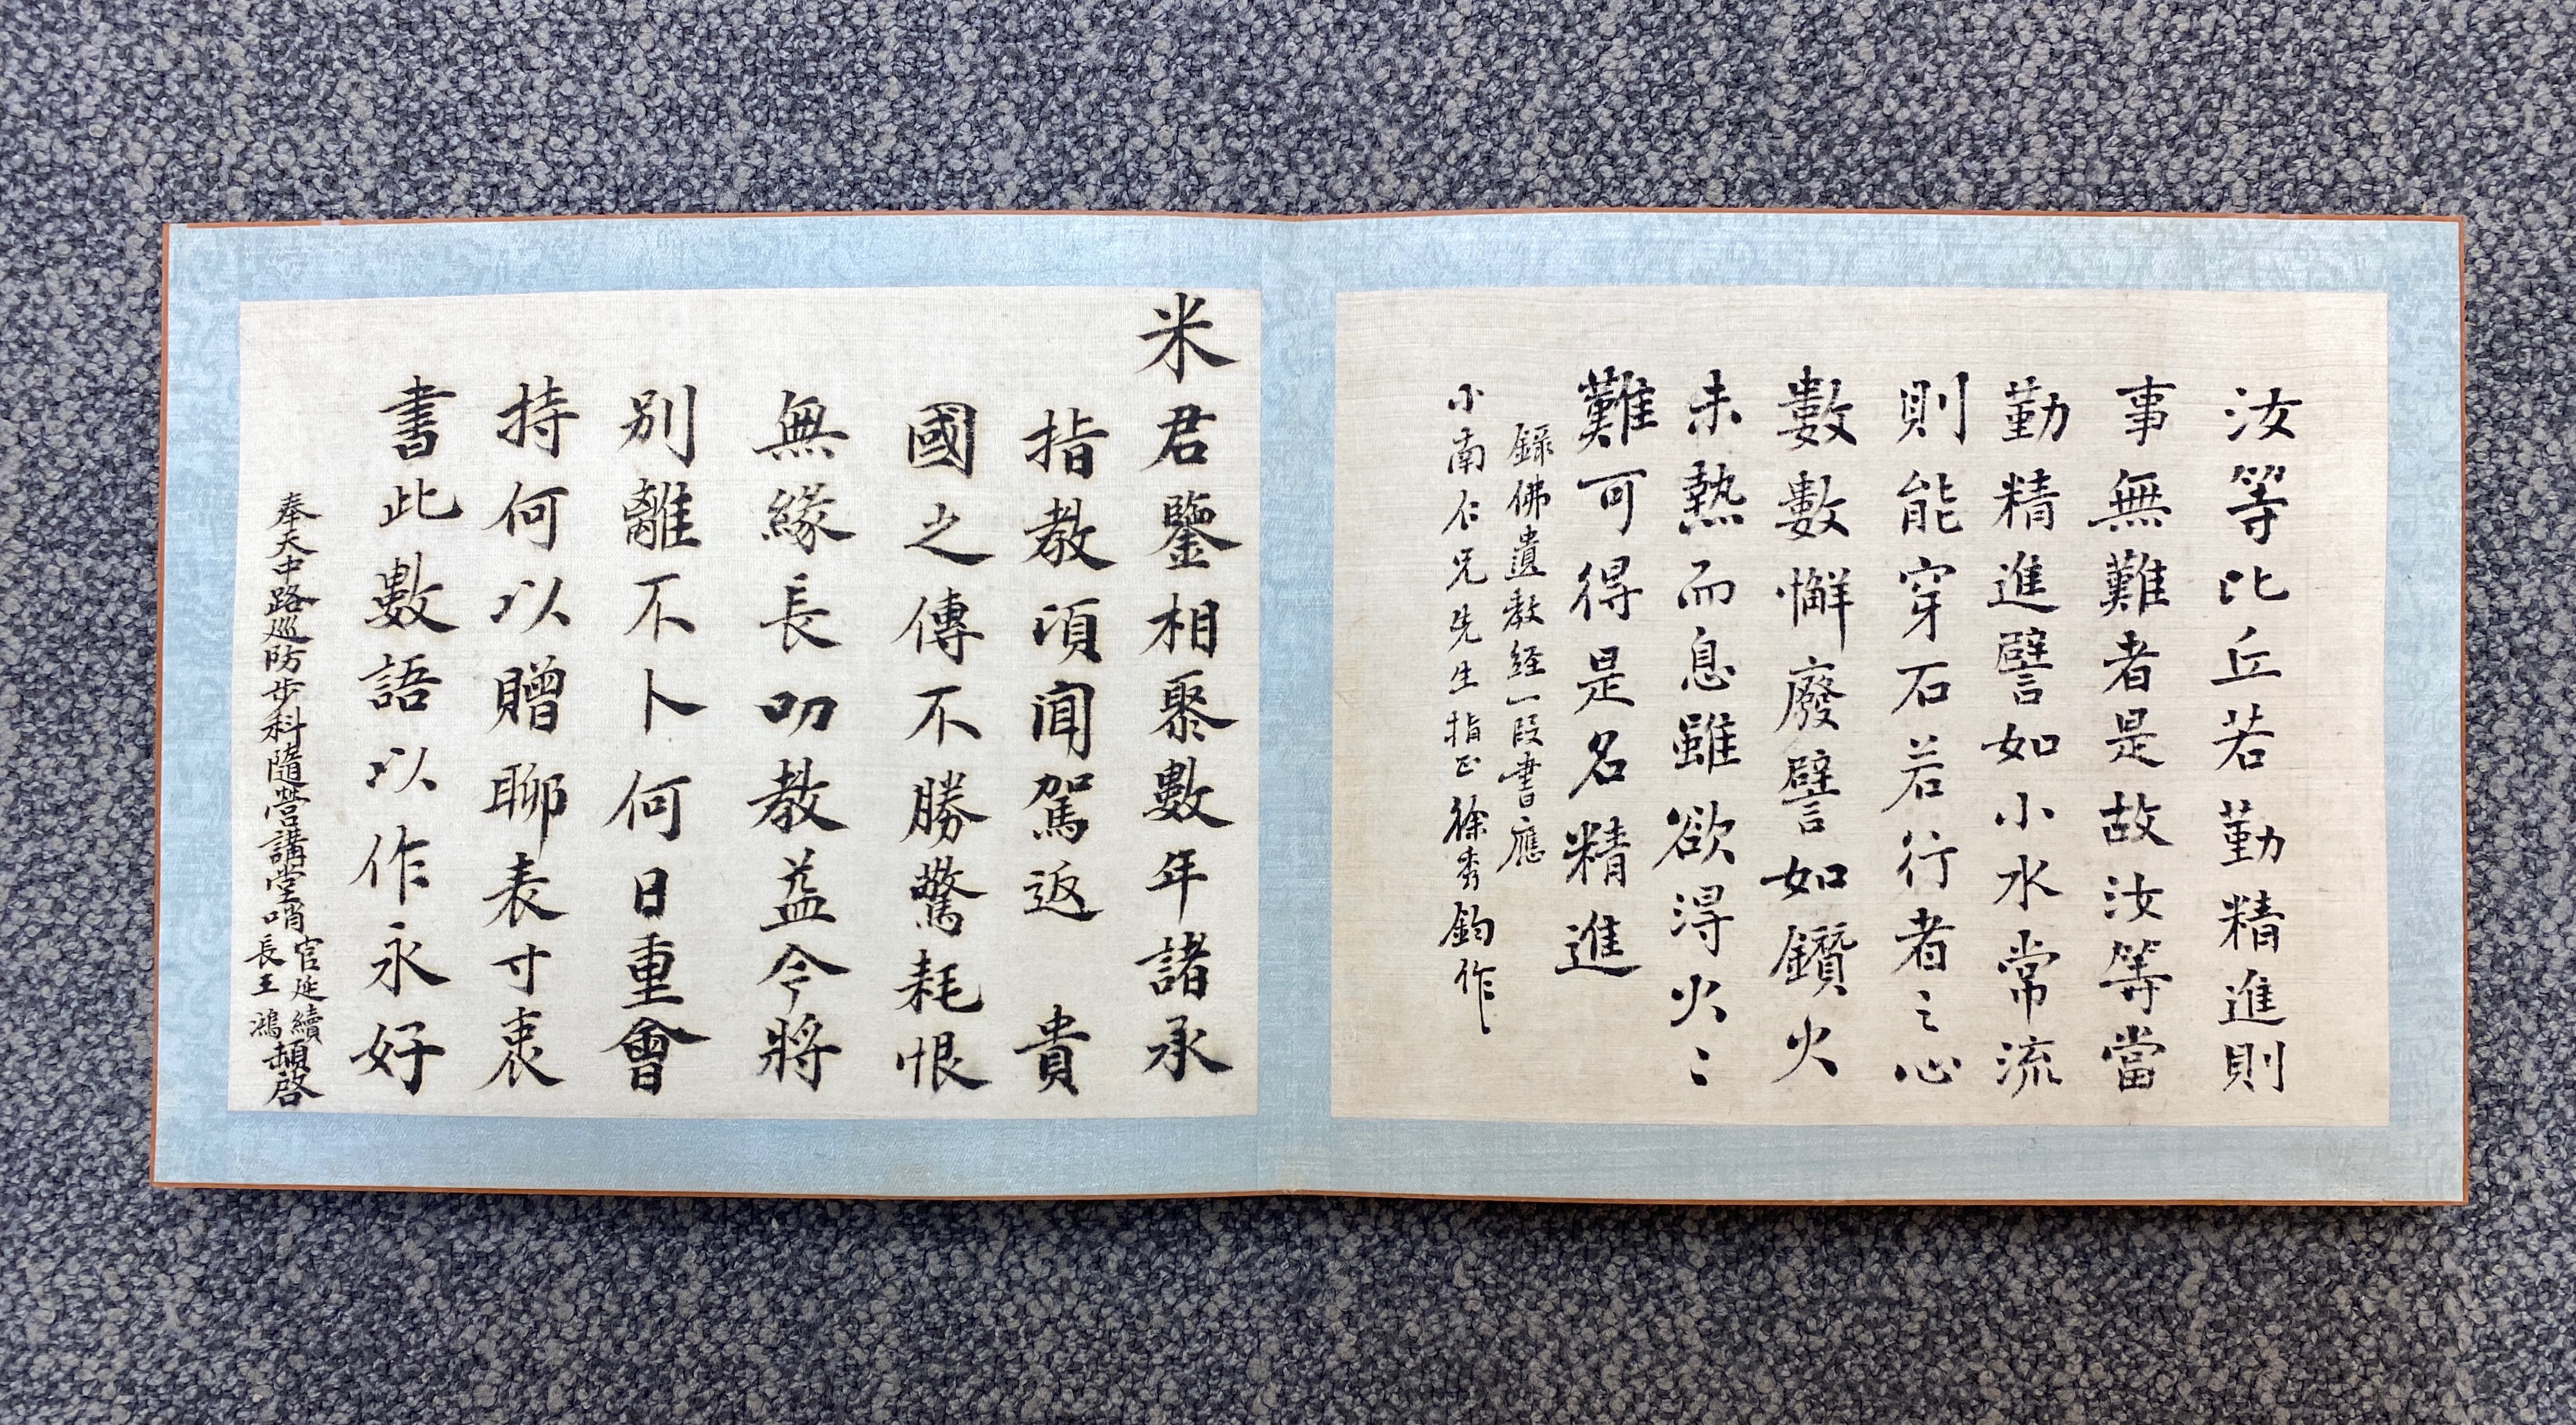 汝等比丘若勤精進則
事無難者是故汝等當
勤精進譬如小水常流
則能穿石若行者之心
數數懈廢譬如鑽火
未熱而息雖欲得火火
難可得是名精進
錄佛遺教経一段書應
小南仁兄先生指正 徐秀鈞作
米君鑒相聚數年諸承
指教頃聞駕返 貴
國之傳不勝驚耗恨
無緣長叨教益今將
別離不卜何日重會
持何以贈聊表寸衷
書此數語以作永好
奉天中路巡防步科隨營講堂哨官延續
長王鴻
頓啓